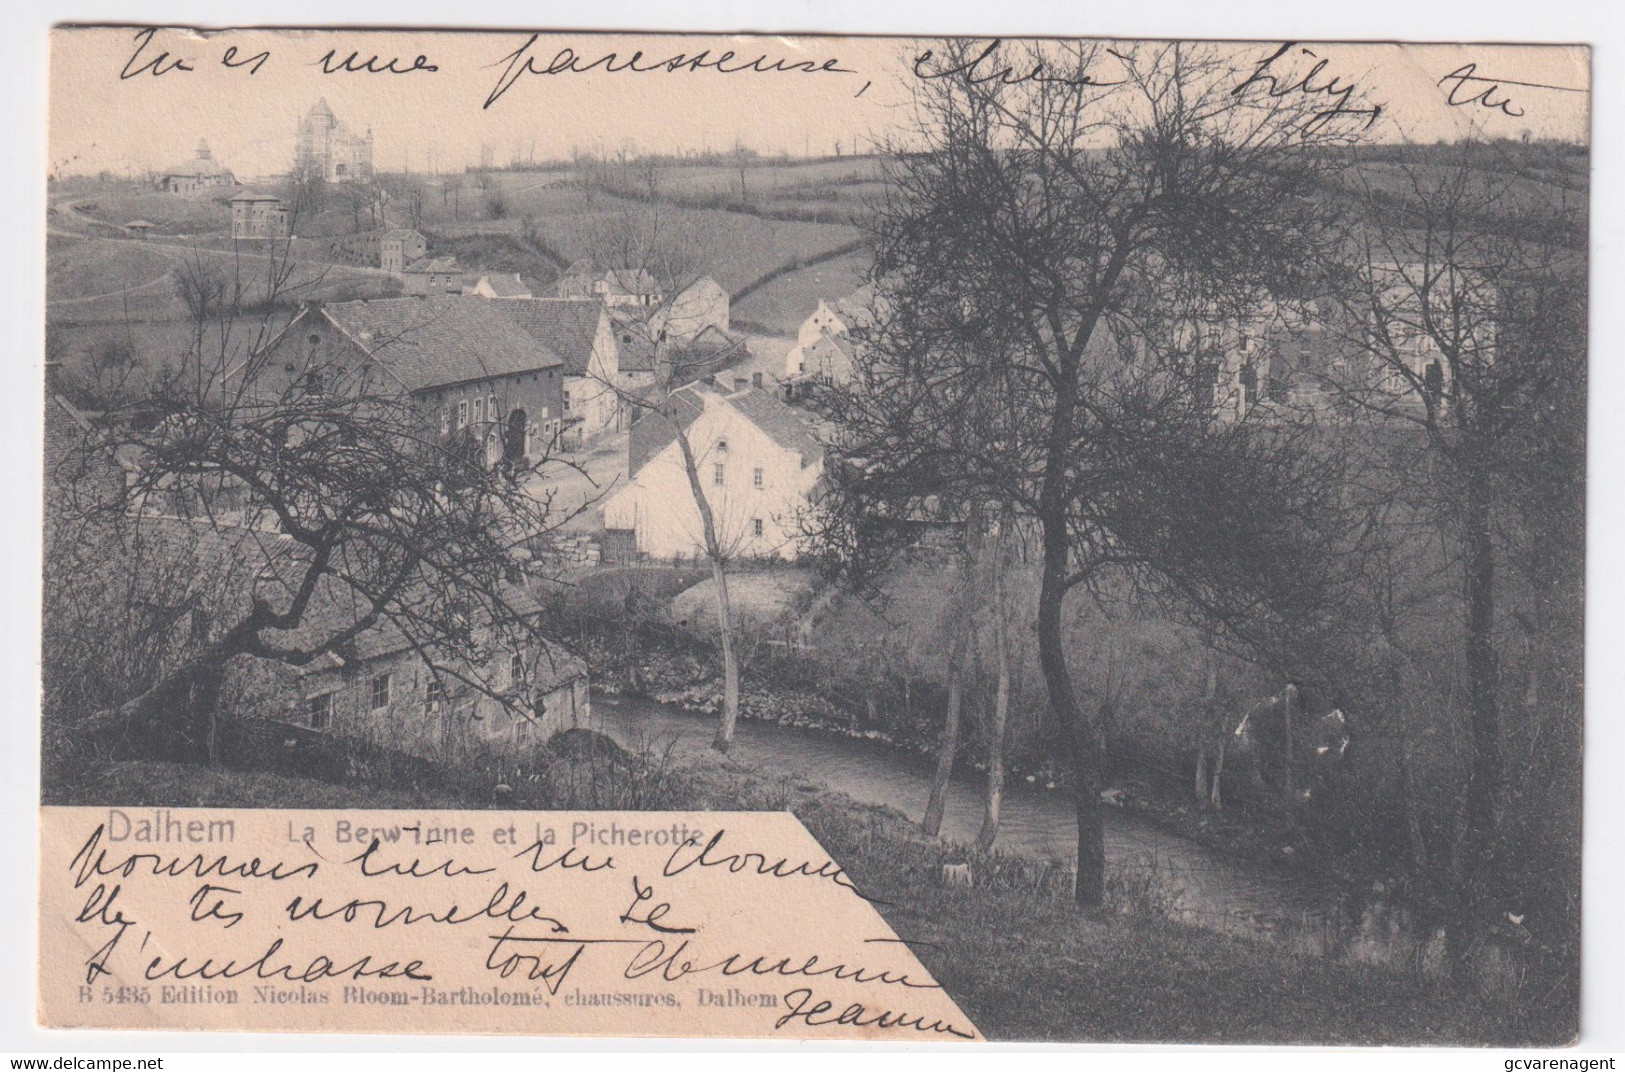 Tu es une paresseuse, chère Lily, tu
Dalhem La Berwinne et la Picherotte
pourrais bien me donner
de tes nouvelles, Je
t'embrasse tout doucement
B 5435 Edition Nicolas Bloom-Bartholomé, chaussures, Dalhem
Jeanne
gcvarenagent